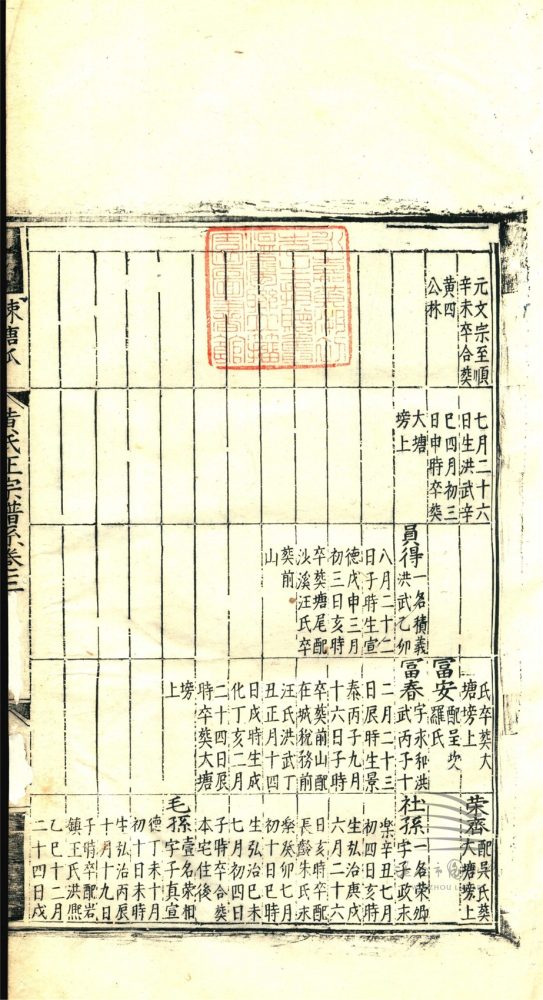 元文宗至順
辛未卒合葬
黄四
公林
七月二十六
日生洪武辛
巳四月初三
日申時卒葬
大塘
塝上
員得一名積義
洪武乙卯
八月二十二
日子時生宣
德戊申三月
初三日亥時
卒葬塘尾配
沙溪汪氏卒
葬前
山
氏卒葬大
塘塝上
富安配呈坎
羅氏
富春字永和洪
武丙子十
二月二十三
日辰時生景
泰丙子九月
十六日子時
卒葬前山配
在城稅務前
汪氏洪武丁
丑正月十四
日戌時生成
化丁亥二月
二十四日辰
時卒葬大塘
塝
上
荣齐配吴氏葬
大塘塝上
社孫一名荣卿
字子政永
樂辛丑七月
初四日亥時
生弘治庚戌
六月二十六
日亥時卒配
長齡朱氏永
樂癸卯七月
初十日巳時
生弘治己未
七月初四日
子時卒合葬
本宅住後
毛孫壹名荣相
字子真宣
德丁未十月
初十日未時
生弘治丙辰
十月十九日
子時卒配岩
鎮王氏洪熙
乙巳十二月
二十四日戌
黄氏正宗譜系卷之三